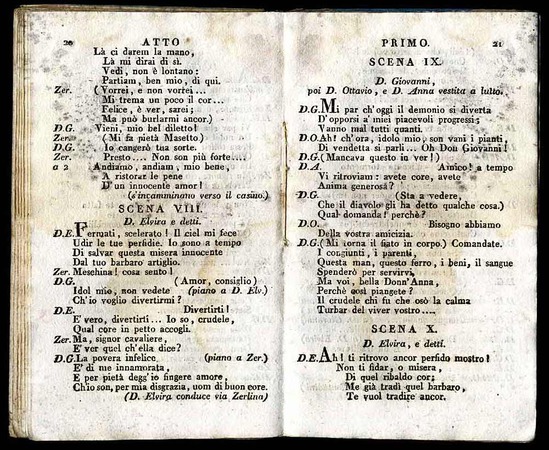 20 ATTO
Là ci darem la mano,
Là mi dirai di sì.
Vedi, non è lontano:
Partiam, ben mio, di qui.
Zer. (Vorrei, e non vorrei...
Mi trema un poco il cor...
Felice, è ver, sarei;
Ma può burlarmi ancor.)
D.G. Vieni, mio bel diletto!
Zer. (Mi fa pietà Masetto)
D.G. Io cangerò tua sorte.
Zer. Presto.... Non son più forte....
a 2 Andiamo, andiam, mio bene,
A ristorar le pene
D'un innocente amor!
(s'incamminano verso il casino.)
SCENA VIII.
D. Elvira e detti.
D.E. Fermati, scelerato! Il ciel mi fece
Udir le tue perfidie. Io sono a tempo
Di salvar questa misera innocente
Dal tuo barbaro artiglio.
Zer. Meschina! cosa sento!
D.G. (Amor, consiglio)
Idol mio, non vedete (piano a D. Elv.)
Ch'io voglio divertirmi?
D.E. Divertirti!
E' vero, divertirti... Io so, crudele,
Qual core in petto accogli.
Zer. Ma, signor cavaliere,
E' ver quel ch'ella dice?
D.G. La povera infelice (piano a Zer.)
E' di me innamorata,
E per pietà degg'io fingere amore,
Ch'io son, per mia disgrazia, uom di buon core.
(D. Elvira conduce via Zerlina)
PRIMO. 21
SCENA IX.
D. Giovanni,
poi D. Ottavio, e D. Anna vestita a lutto.
D.G. Mi par ch'oggi il demonio si diverta
D'opporsi a' miei piacevoli progressi;
Vanno mal tutti quanti.
D.O. Ah! ch'ora, idolo mio, son vani i pianti,
Di vendetta si parli... Oh Don Giovanni!
D.G. (Mancava questo in ver!)
D.A. Amico! a tempo
Vi ritroviam: avete core, avete
Anima generosa?
D.G. (Sta a vedere,
Che il diavolo gli ha detto qualche cosa.)
Qual domanda! perchè?
D.O. Bisogno abbiamo
Della vostra amicizia.
D.G. (Mi torna il fiato in corpo.) Comandate.
I congiunti, i parenti,
Questa man, questo ferro, i beni, il sangue
Spenderò per servirvi,
Ma voi, bella Donn'Anna,
Perchè così piangete?
Il crudele chi fu che osò la calma
Turbar del viver vostro....
SCENA X.
D. Elvira, e detti.
D.E. Ah! ti ritrovo ancor perfido mostro!
Non ti fidar, o misera,
Di quel ribaldo cor;
Me già tradì quel barbaro,
Te vuol tradire ancor.